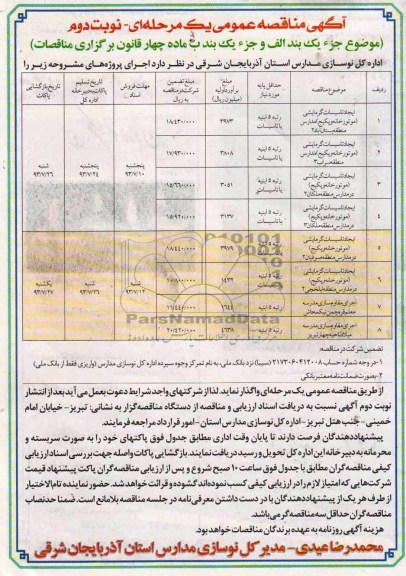 آگهی مناقصه عمومی یک مرحله‌ای- نوبت دوم
(موضوع جزء یک بند الف و جزء یک بند ب ماده چهار قانون برگزاری مناقصات)
اداره کل نوسازی مدارس استان آذربایجان شرقی در نظر دارد اجرای پروژه‌های مشروحه زیر را
ردیف موضوع مناقصه حداقل پایه مورد نیاز مبلغ برآورد اولیه (میلیون ریال) مبلغ تضمین شرکت در مناقصه به ریال مهلت فروش اسناد تاریخ تسلیم پاکات به دبیرخانه اداره کل تاریخ بازگشایی پاکات
۱ ایجاد تاسیسات گرمایشی (موتورخانه و پکیج) مدارس منطقه بستان آباد۲ رتبه ۵ ابنیه یا تاسیسات ۳۹۷۳ ۱۸/۴۳۰/۰۰۰
۲ ایجاد تاسیسات گرمایشی (موتورخانه و پکیج) مدارس منطقه سراب۳ رتبه ۵ ابنیه یا تاسیسات ۳۸۰۸ ۱۷/۹۳۰/۰۰۰
۳ ایجاد تاسیسات گرمایشی (موتورخانه و پکیج) در مدارس منطقه ملکان۲ رتبه ۵ ابنیه یا تاسیسات ۳۰۵۱ ۱۵/۶۶۰/۰۰۰
پنجشنبه ۹۳/۷/۱۰ پنجشنبه ۹۳/۷/۲۴ شنبه ۹۳/۷/۲۶
۴ ایجاد تاسیسات گرمایشی (موتورخانه و پکیج) در مدارس منطقه ملکان۳ رتبه ۵ ابنیه یا تاسیسات ۳۱۳۷ ۱۵/۹۲۰/۰۰۰
۵ ایجاد تاسیسات گرمایشی (موتورخانه و پکیج) در مدارس منطقه صوفیان۲ رتبه ۵ ابنیه یا تاسیسات ۳۹۷۹ ۱۸/۴۴۰/۰۰۰
۶ ایجاد تاسیسات گرمایشی (موتورخانه و پکیج) در مدارس منطقه رتبه ۵ ابنیه یا تاسیسات ۱۴۳۲
شنبه ۹۳/۷/۱۲ شنبه ۹۳/۷/۲۶ یکشنبه ۹۳/۷/۲۷
۷ اجرای مقاوم سازی مدرسه رتبه ۵ ابنیه ۱۶۴۸ ۱۱/۴۴۰/۰۰۰
۸ اجرای مقاوم سازی مدرسه رتبه ۵ ابنیه ۴۶۳۸ ۲۰/۴۲۰/۰۰۰
ParsNamadData
تضمین شرکت در مناقصه:
۱-در وجه شماره حساب ۲۱۷۳۰۶۰۴۱۲۰۰۸ (سیبا) نزد بانک ملی، به نام تمرکز وجوه سپرده اداره کل نوسازی مدارس (واریزی فقط از بانک ملی)
۲-بصورت ضمانت نامه معتبر بانکی
از طریق مناقصه عمومی یک مرحله‌ای واگذار نماید. لذا از شرکتهای واجد شرایط دعوت بعمل می‌آید بعد از انتشار
نوبت دوم آگهی نسبت به دریافت اسناد ارزیابی و مناقصه از دستگاه مناقصه‌گزار به نشانی: تبریز - خیابان امام
خمینی - جنب هتل تبریز - اداره کل نوسازی مدارس استان - امور قرارداد مراجعه فرمایند.
پیشنهاددهندگان فرصت دارند تا پایان وقت اداری مطابق جدول فوق پاکتهای خود را به صورت سربسته و
محرمانه به دبیرخانه این اداره کل تحویل و رسید دریافت نمایند. بازگشایی پاکات واصله جهت بررسی اسناد ارزیابی
کیفی مناقصه‌گران مطابق با جدول فوق ساعت ۱۰ صبح شروع و پس از ارزیابی مناقصه‌گران پاکت پیشنهاد قیمت
شرکت‌هایی که امتیاز لازم را در ارزیابی کیفی کسب نموده‌اند گشوده و قرائت خواهد شد. حضور نماینده تام‌الاختیار
از طرف هر یک از پیشنهاددهندگان با در دست داشتن معرفی‌نامه در جلسه مناقصه بلامانع است. ضمنا حدنصاب
مناقصه‌گران حداقل سه مناقصه‌گر می‌باشد.
هزینه آگهی روزنامه به عهده برندگان مناقصات خواهد بود.
محمدرضا عیدی - مدیر کل نوسازی مدارس استان آذربایجان شرقی